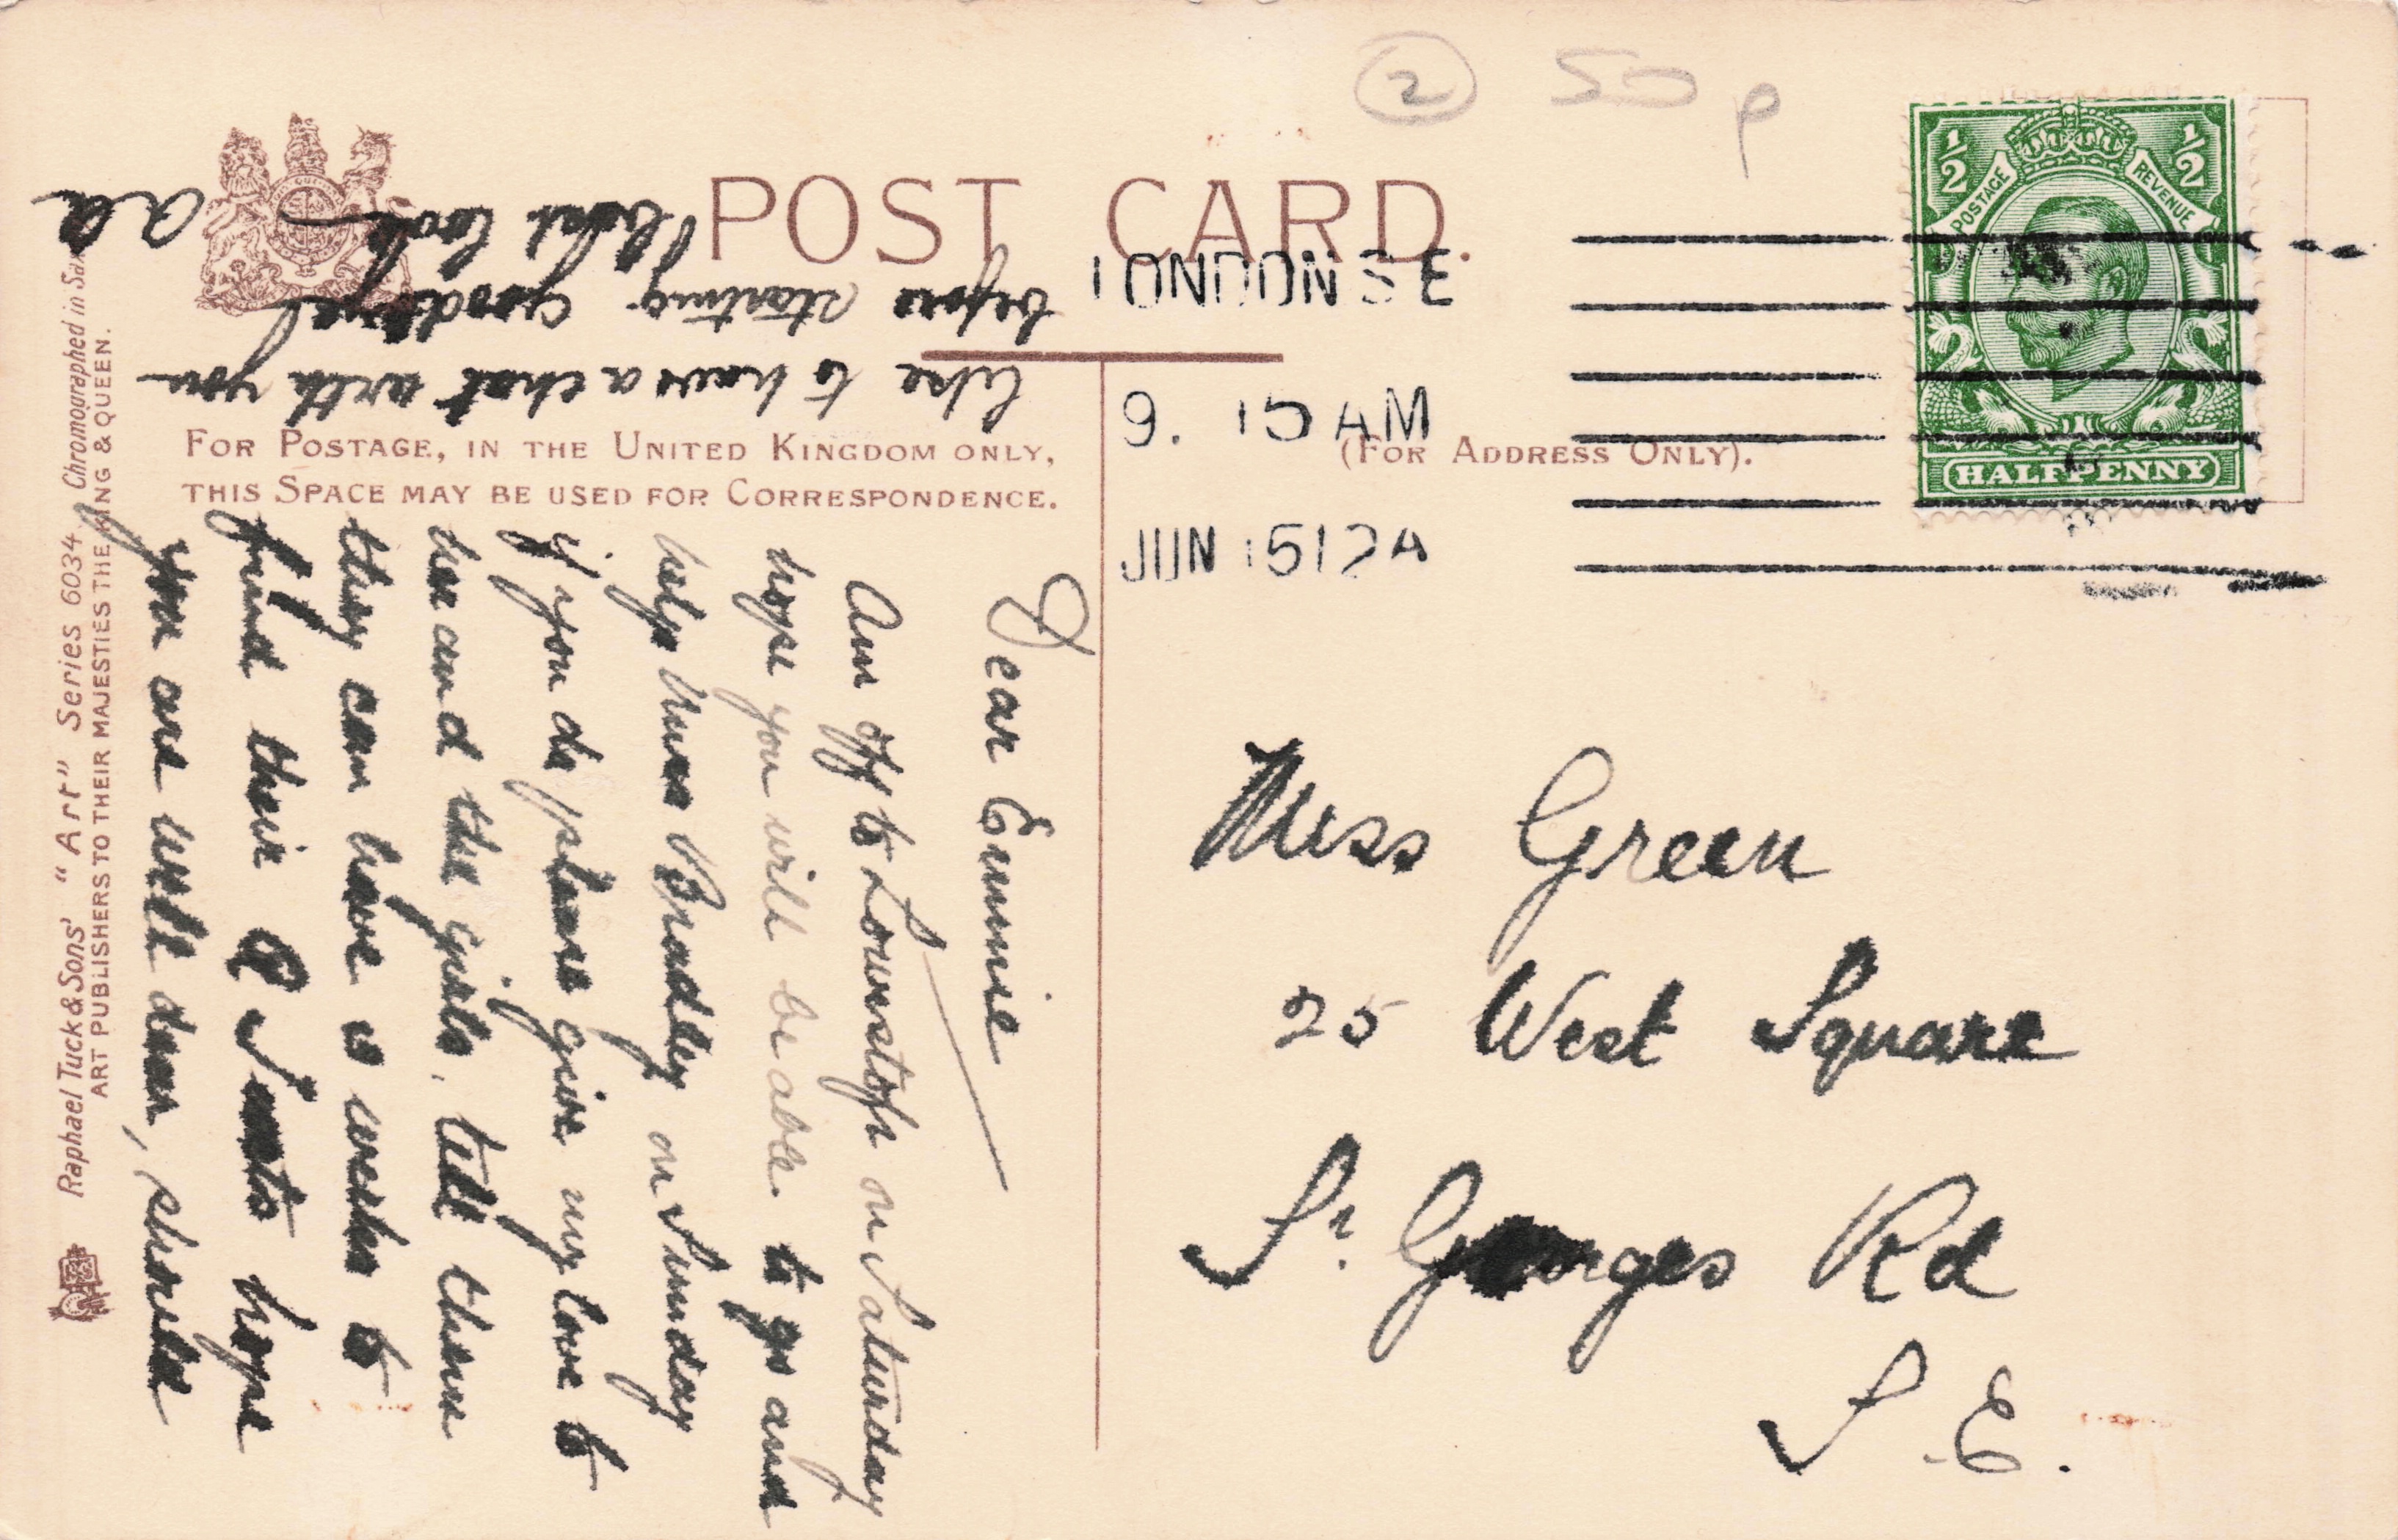 2 50p
POST CARD.
FOR POSTAGE, IN THE UNITED KINGDOM ONLY,
THIS SPACE MAY BE USED FOR CORRESPONDENCE.
(FOR ADDRESS ONLY).
LONDON S E
9. 15 AM
JUN 5 12 A
1/2 1/2
POSTAGE REVENUE
HALFPENNY
Dear Emmie
Am off to Lowestoft on Saturday
hope you will be able to go and
help Bradley on Sunday
if you do please give my love to
her and the girls, tell them
they can have 10 weeks to
find their hope
you are well dear, should
like to have a chat with you
before starting goodbye
best love
Miss Green
25 West Square
St. Georges Rd
S. E.
Raphael Tuck & Sons' "Art" Series 6034 Chromographed in
ART PUBLISHERS TO THEIR MAJESTIES THE KING & QUEEN.